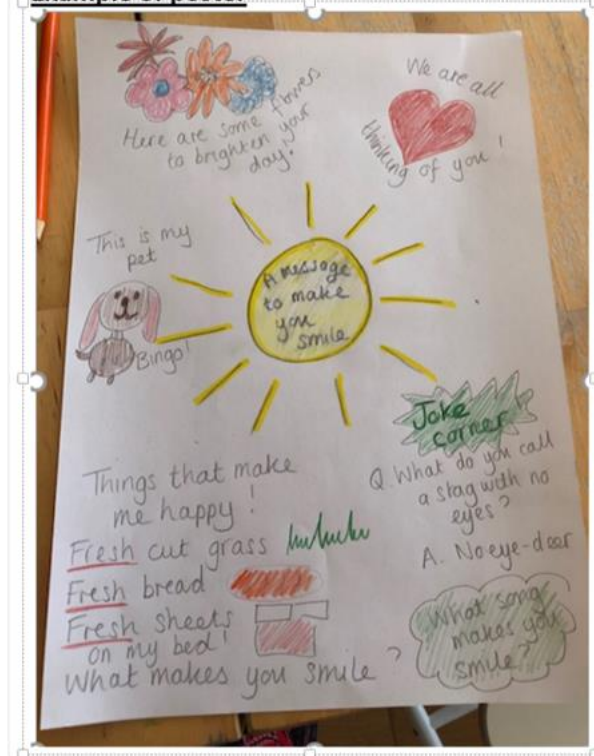 Example of poster
Here are some flowers
to brighten your
day!
We are all
thinking of you!
This is my
pet
Bingo!
A message
to make
you
smile
Joke
corner
Q. What do you call
a stag with no
eyes?
A. No eye-deer
Things that make
me happy!
Fresh cut grass
Fresh bread
Fresh sheets
on my bed!
What makes you smile?
What song
makes you
smile?